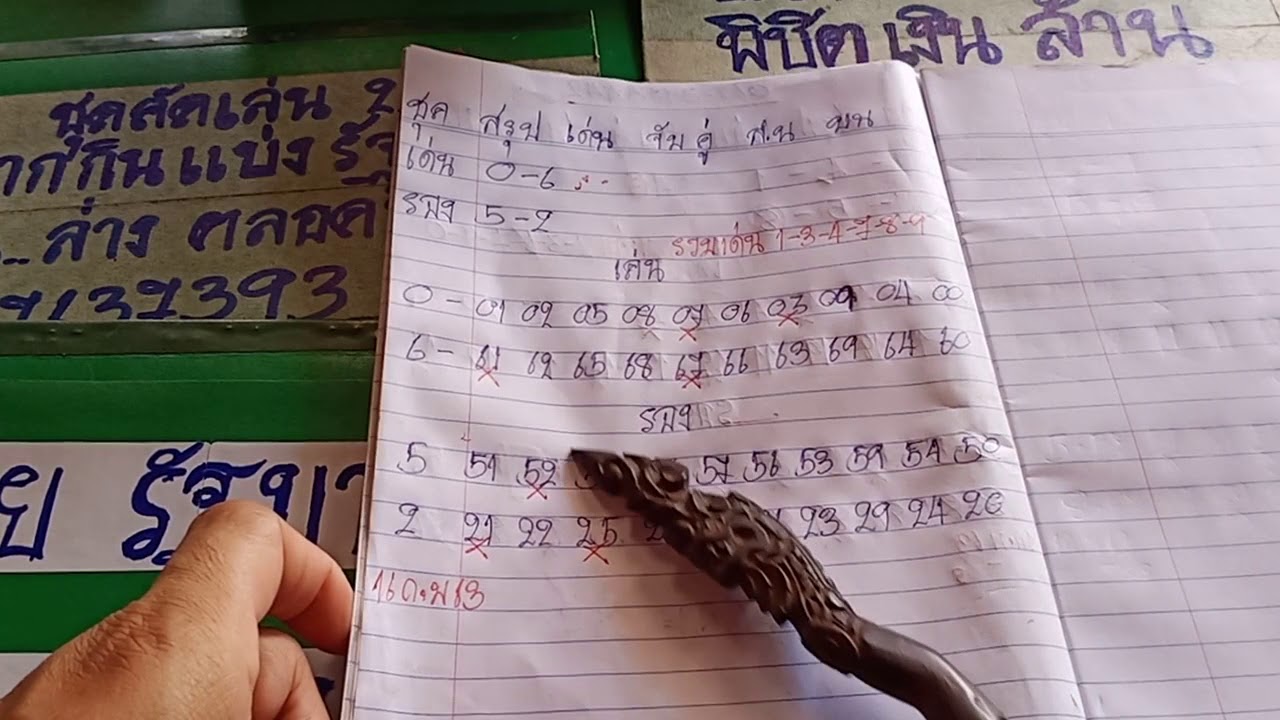 พิชิตเงินล้าน
ชุดคัดเล่น 2
ากกินแบ่งรัฐ
..ล่าง ตลอด
137393
ย รัฐบา
ชุด สรุป เด่น จับคู่ ส.น บน
เด่น 0-6
รอง 5-2
รวมเด่น 1-3-4-7-8-9
เด่น
0- 01 02 05 08 07 06 03 09 04 00
6- 61 62 65 68 67 66 63 69 64 60
รอง
5 51 52 57 56 53 59 54 50
2 21 22 25 23 29 24 20